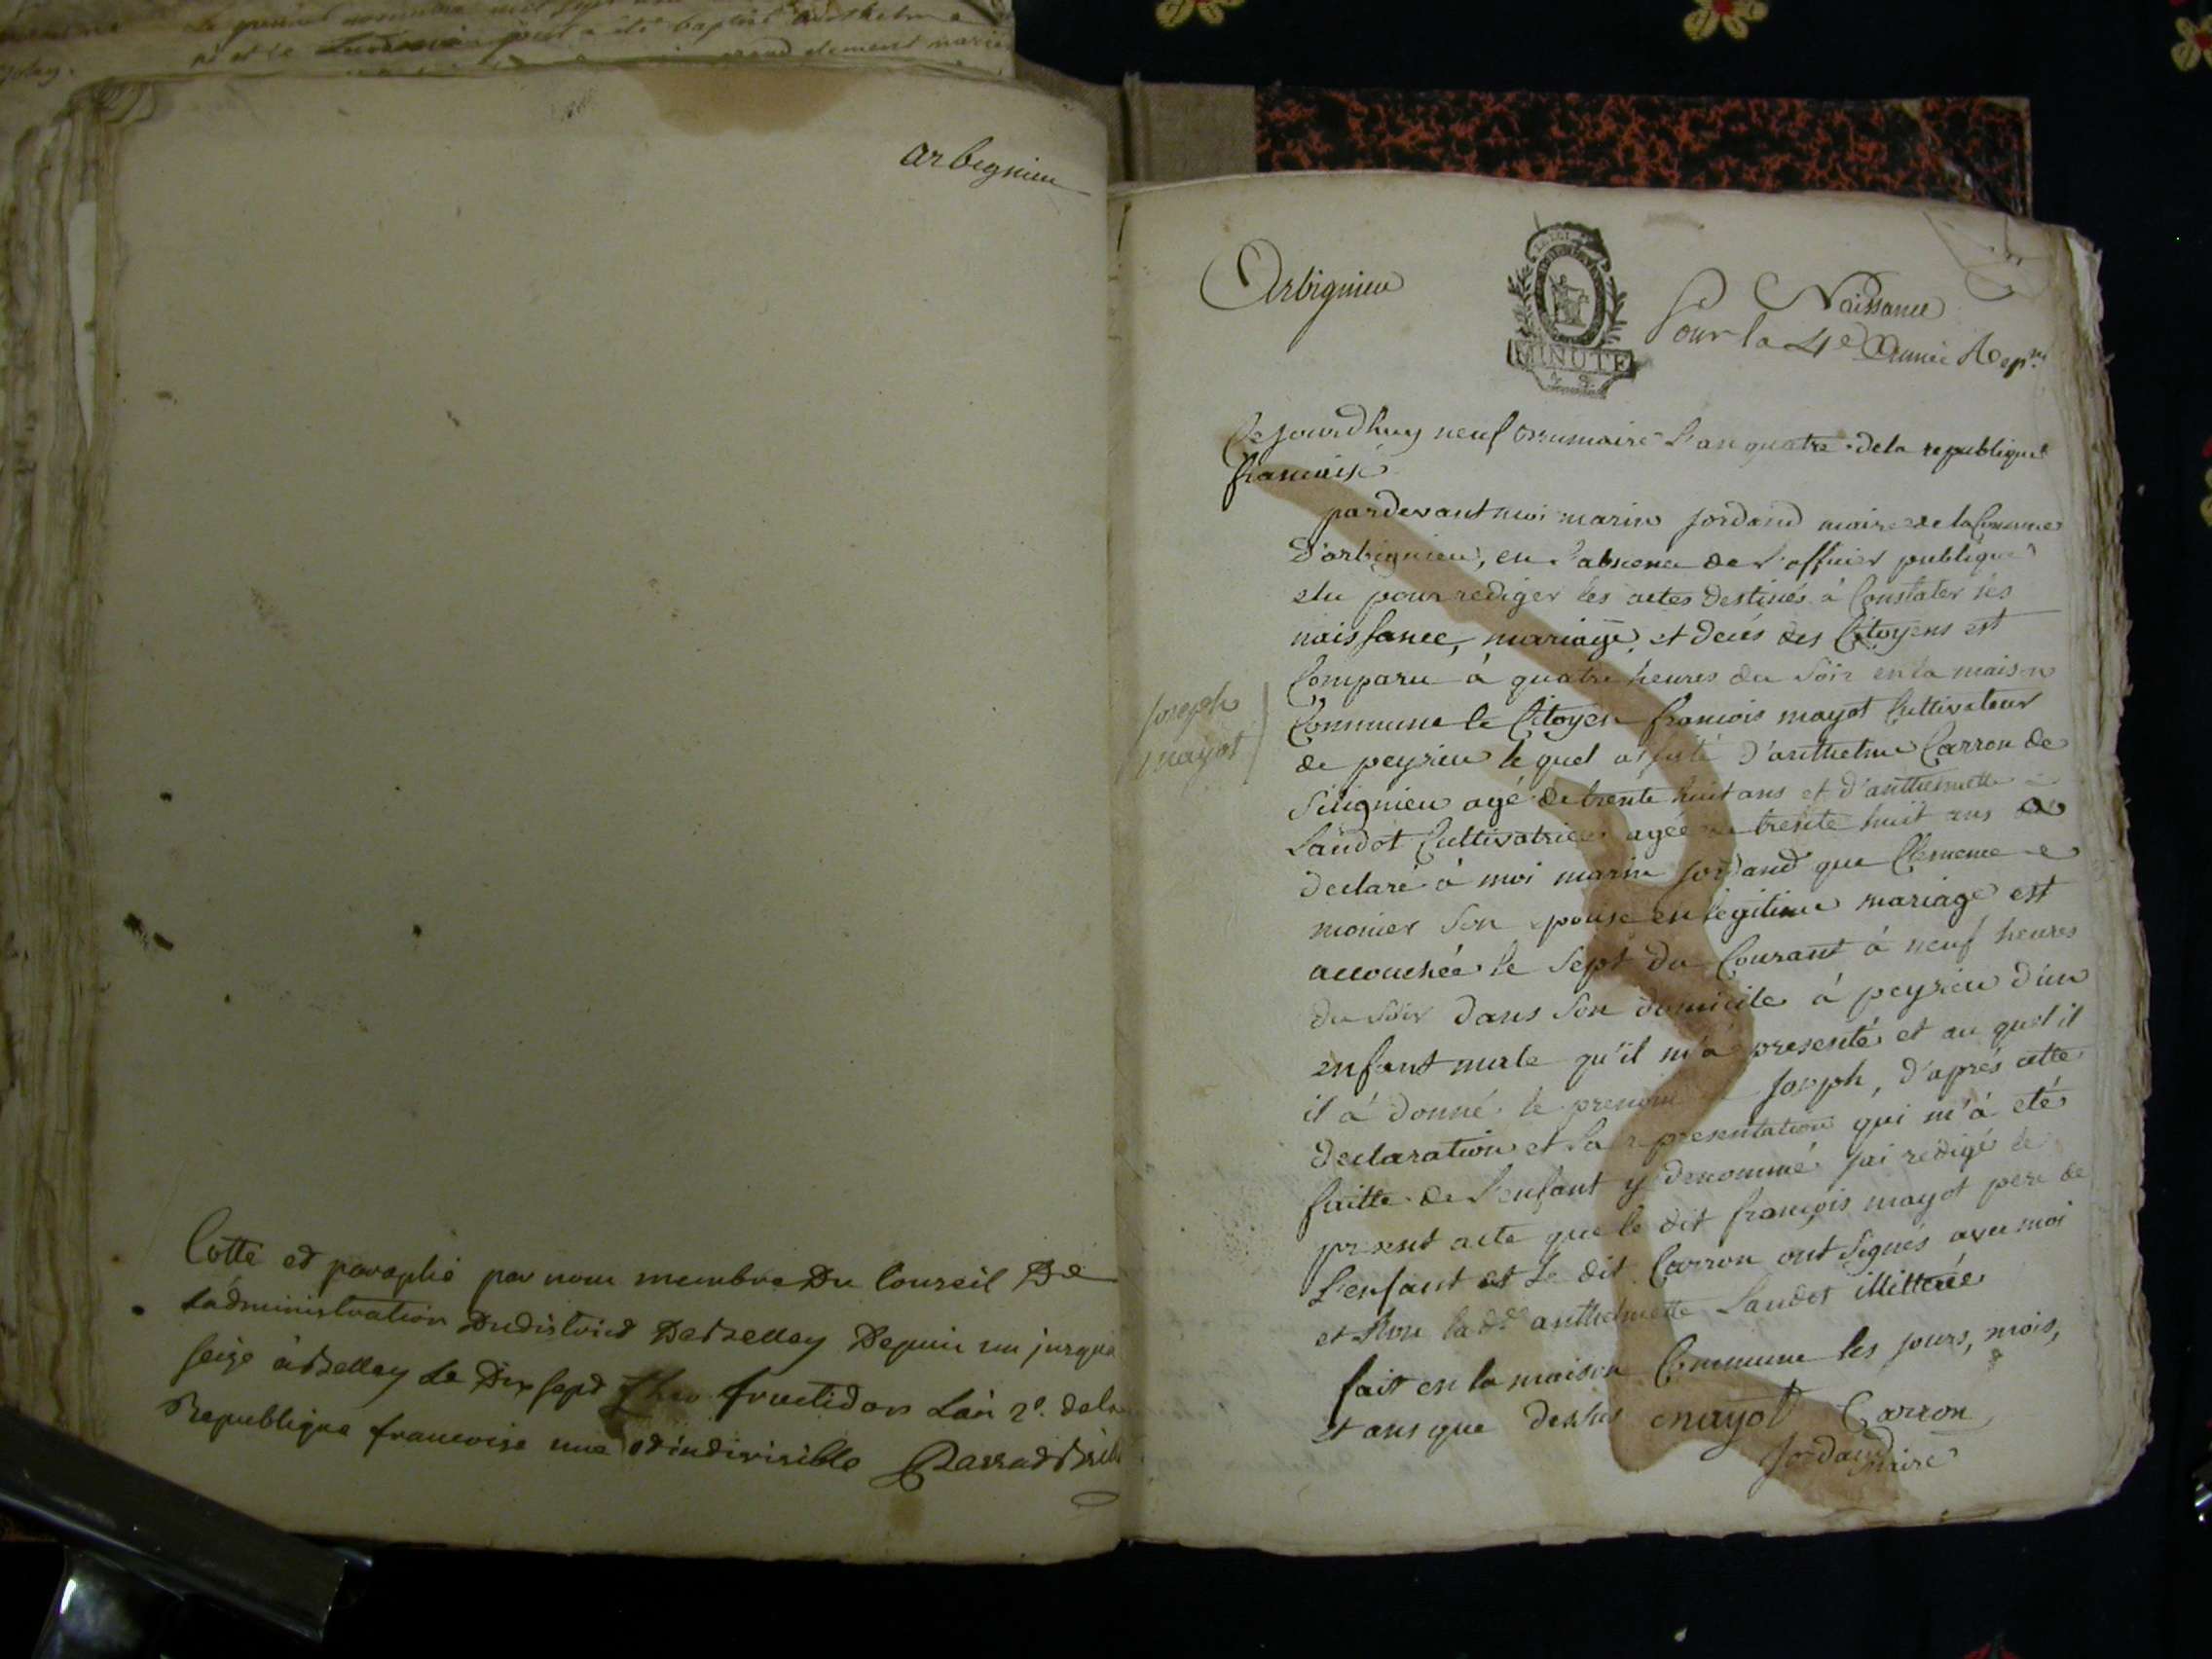 arbignieu
Cotté et paraphé par nous membre Du Conseil De
L'administration Du district De Belley Depuis un jusqua
seize à Belley Le Dix sept fructidor L'an 2e. de la
Republique francoise une et indivisible
Arbignieu
MINUTE
Naissance
Pour la 4e Année Rep.ne
Cejourdhuy neuf brumaire L'an quatre de la republique
francaise
pardevant moi marin Jordand maire de la Commune
D'arbignieu, en l'absence de l'officier publique
elu pour rediger les actes destinés à Constater les
naissance, mariage, et décès des Citoyens est
Comparu à quatre heures du Soir en la maison
Commune le Citoyen francois mayot Cultivateur
Joseph
mayot
de peyrieu lequel assisté d'anthelme Carron de
Sillignieu agé de trente huit ans et d'anthelmette
Landot Cultivatrice agée de trente huit ans a
declaré à moi marin Jordand que Clemence
monier Son epouse en legitime mariage est
accouchée le Sept du Courant à neuf heures
du Soir dans Son domicile à peyrieu d'un
enfant male qu'il m'a presenté et au quel il
il à donné le prenom Joseph, d'aprés cette
declaration et la representation qui m'à eté
faitte de L'enfant y denommé j'ai redigé le
present acte que le dit françois mayot pere de
L'enfant et Le dit Carron ont Signés avec moi
et Non la dte anthelmette Landot illitterée
fait en la maison Commune les jours, mois,
et ans que dessus mayot Carron
Jordand maire